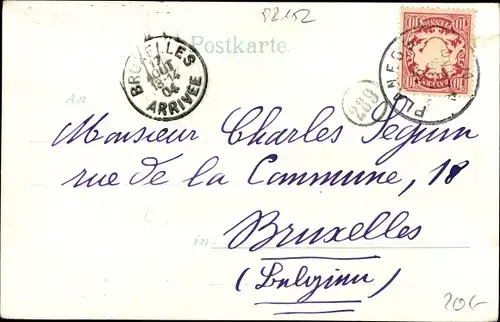 82152
Postkarte.
BRUXELLES
17
AOUT
14
04
ARRIVÉE
289
10
10
An
Monsieur Charles Seguin
rue de la Commune, 18
in Bruxelles
(Belgien)
20G